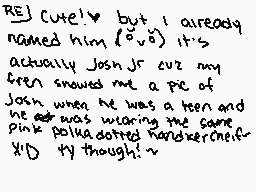 RE] cute!♥ but i already
named him (ŏvŏ) it's
actually Josh Jr cuz my
fren showed me a pic of
Josh when he was a teen and
he was wearing the same
pink polka dotted handkercheif~
X'D ty though! ~